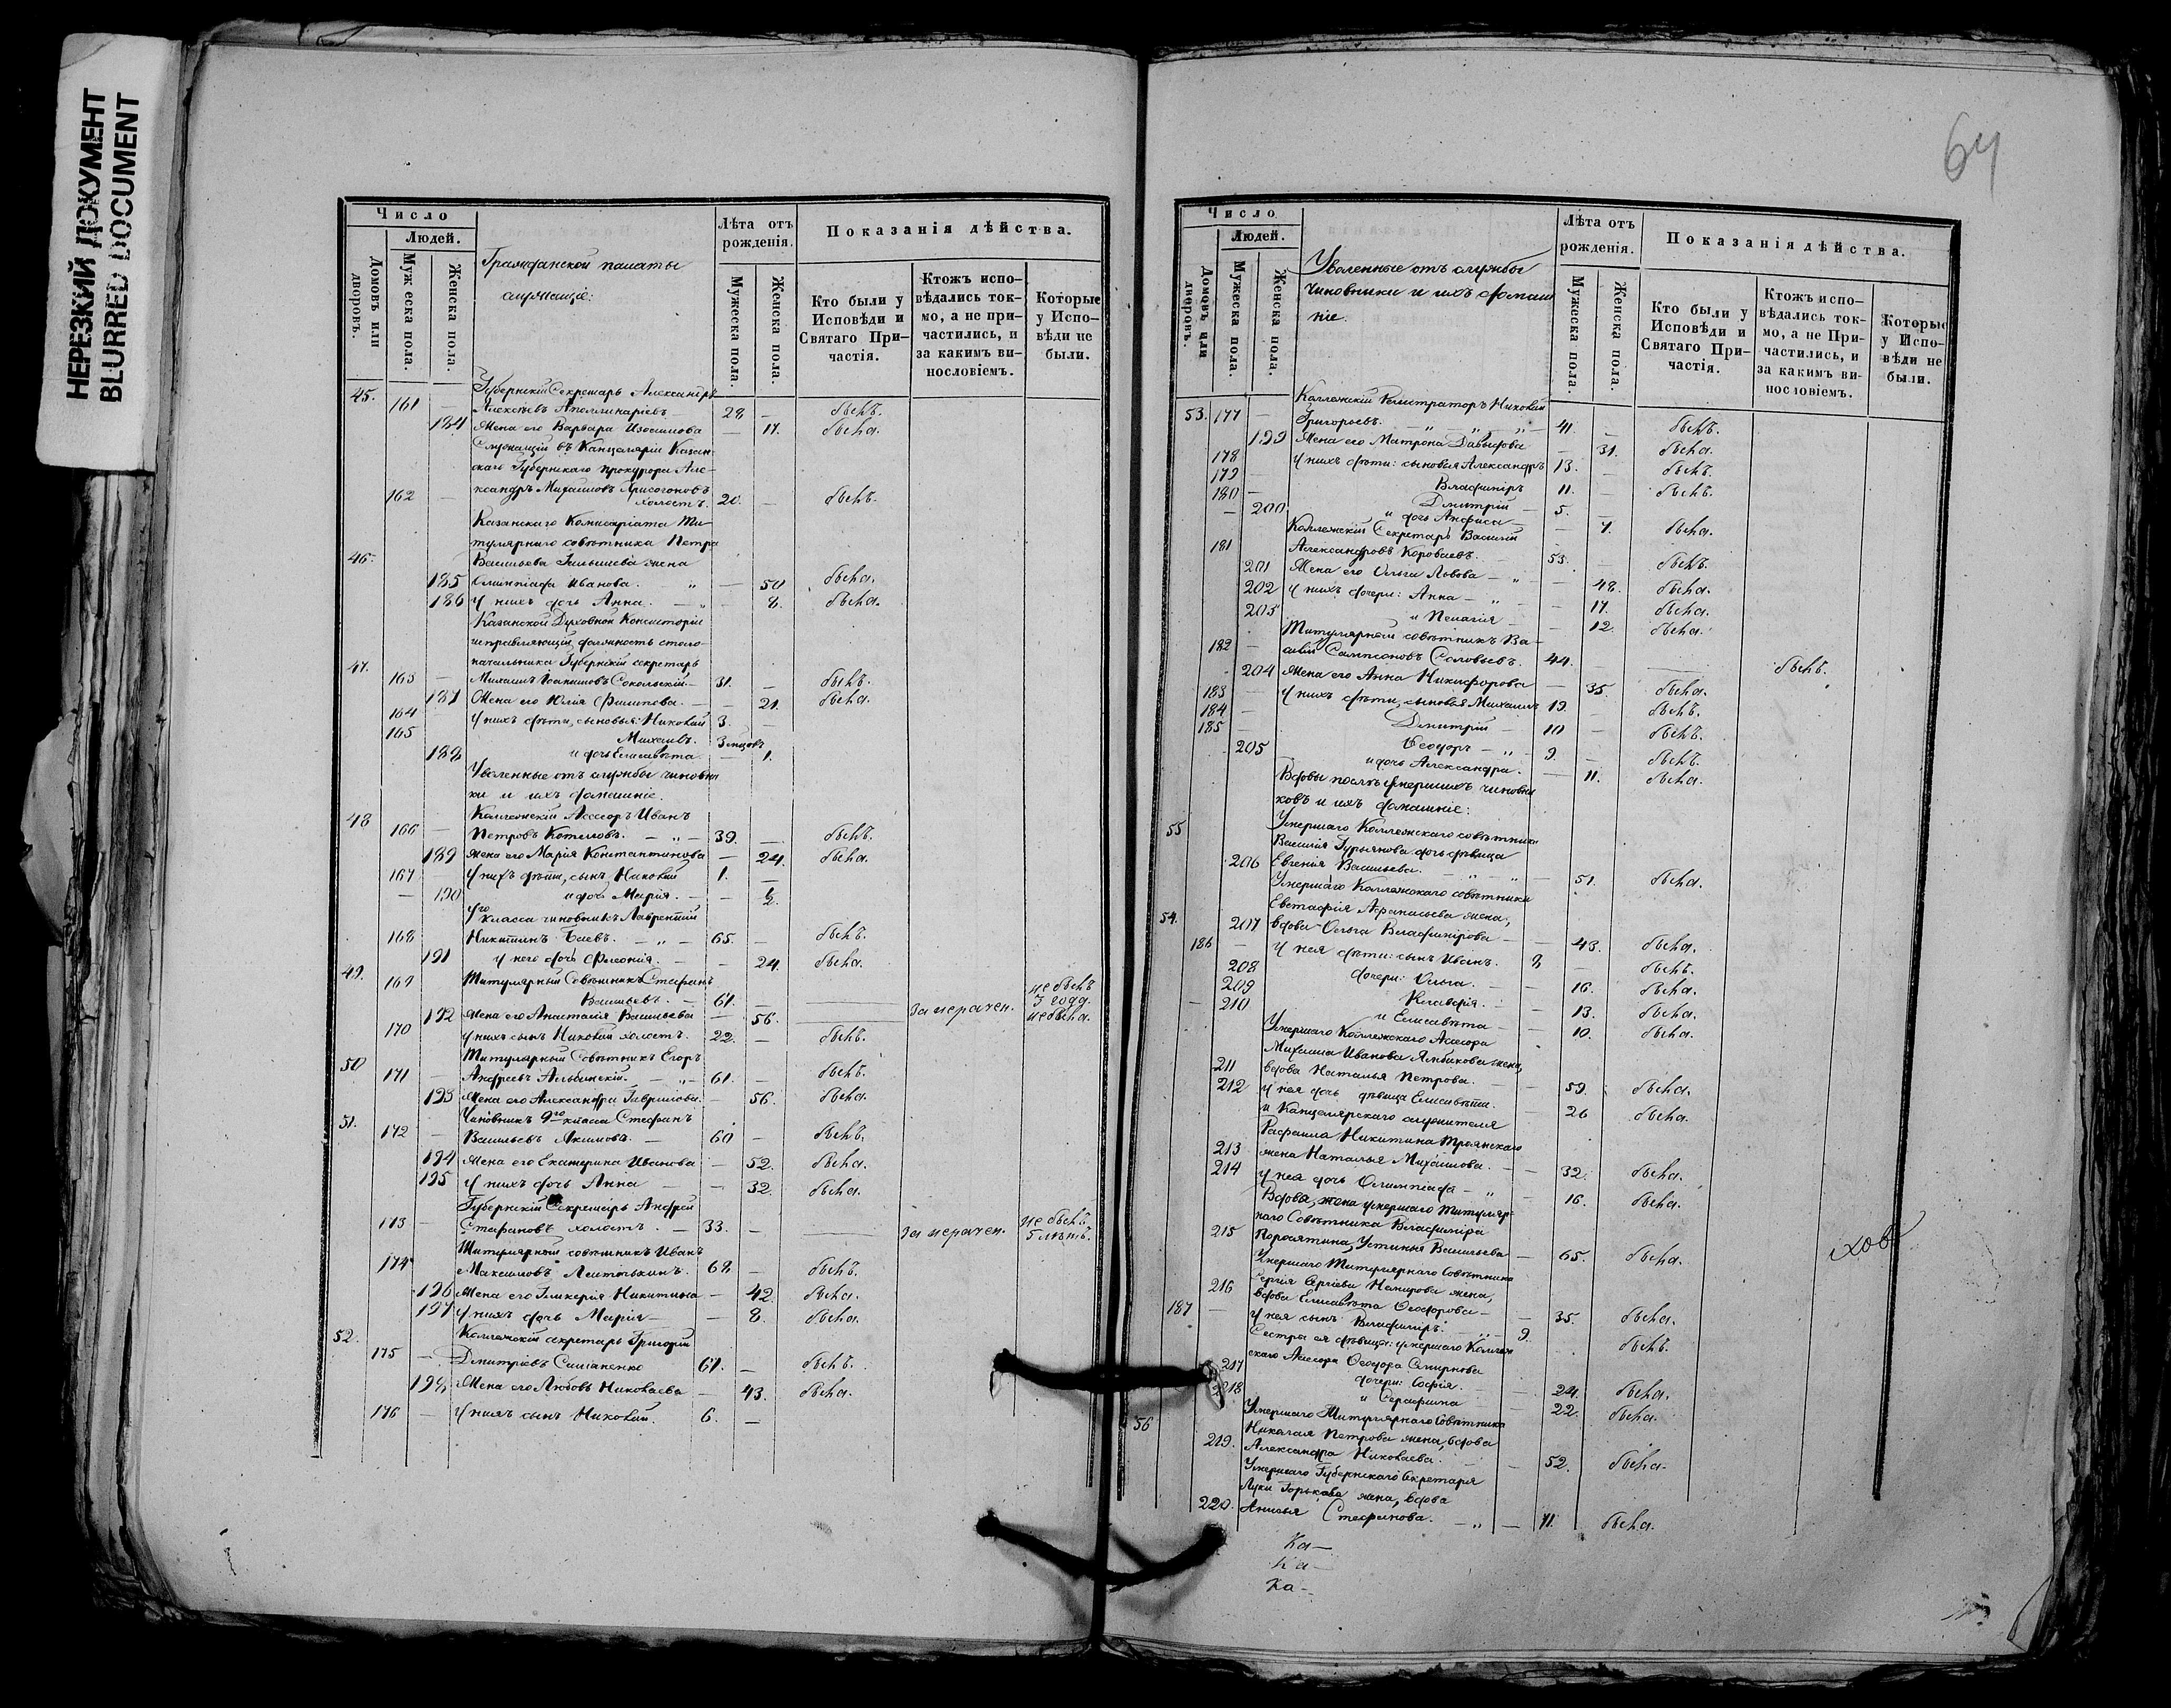 НЕРЕЗКИЙ ДОКУМЕНТ
BLURRED DOCUMENT
Число
Людей.
Домовъ или дворовъ.
Мужеска пола.
Женска пола.
Гражданской палаты
служащіе:
Лѣта отъ рожденія.
Мужеска пола.
Женска пола.
Показанія дѣйства.
Кто были у Исповѣди и Святаго Причастія.
Ктожъ исповѣдались токмо, а не причастились, и за какимъ винословіемъ.
Которые у Исповѣди не были.
45. Губернскій Секретарь Александръ
161 — Алексѣевъ Аполлинаріевъ — 28 — бы́лъ.
184 Жена его Варвара Изосимова — 17. была.
Служащій въ Канцеляріи Казан-
скаго Губернскаго прокурора Але-
162 — ксандръ Михаиловъ Хрисогоновъ
холостъ. 20. — былъ.
Казанскаго Комисаріата Ти-
тулярнаго совѣтника Петра
46. Васильева жена
185 Олимпіада Иванова. „ — 50 была.
186 У нихъ дочь Анна. — „ — 8. была.
Казанской Духовной Консисторіи
исправляющій должность столо-
начальника Губернскій секретарь
47. 163 — Михаилъ Іоакимовъ Сокольскій — 31. — былъ.
187 Жена его Юлія Филипова. — — 21. была.
164 У нихъ дѣти, сыновья: Николай 3. —
165 Михаилъ. 3 мѣсяц.
188 и дочь Елисавѣта — 1.
Уволенные отъ службы чиновни
ки и ихъ домашніе.
48 Коллежскій Ассесоръ Иванъ
166 — Петровъ Котеловъ. — „ — 39. — былъ.
189 Жена его Марія Константинова — 24. была.
167 — У нихъ дѣти, сынъ Николай 1. —
— 190 и дочь Марія. — — ½.
9го класса чиновникъ Лаврентій
168 Никитинъ Баевъ. — „ — 65. — былъ.
191 У него дочь Флеонія. — — 24. была.
49. 169 Титулярный Совѣтникъ Стефанъ
Васильевъ. — 67. — не былъ 3 года.
192 Жена его Анастасія Васильева — 56. за нерачен. не была.
170 У нихъ сынъ Николай холостъ. 22. — былъ.
50 Титулярный Совѣтникъ Егоръ
171 — Андреевъ Альбинскій. — „ — 61. — былъ.
193 Жена его Александра Гаврилова. — 56. была.
51. Чиновникъ 9го класса Стефанъ
172 — Васильевъ Акимовъ. — 60 — былъ.
194 Жена его Екатерина Иванова — 52. была.
195 У нихъ дочь Анна — — 32. была.
Губернскій Секретарь Андрей
173 — Стефановъ холостъ. — 33. — за нерачен. не былъ 5 лѣтъ.
Титулярный совѣтникъ Иванъ
174 Максимовъ 68 — былъ.
196 Жена его Гликерія Никитина — 42. была.
197 У нихъ дочь Марія — — 8. была.
52. Коллежскій секретарь Григорій
175 — Дмитріевъ Симаненко 67. — былъ.
198 Жена его Любовь Николаева — 43. была.
176 — У нихъ сынъ Николай. 6. —
64
Число
Людей.
Домовъ или дворовъ.
Мужеска пола.
Женска пола.
Уволенные отъ службы
чиновники и ихъ домаш
ніе.
Лѣта отъ рожденія.
Мужеска пола.
Женска пола.
Показанія дѣйства.
Кто были у Исповѣди и Святаго Причастія.
Ктожъ исповѣдались токмо, а не Причастились, и за какимъ винословіемъ.
Которые у Исповѣди не были.
Коллежскій Регистраторъ Николай
53. 177 — Григорьевъ. — „ — „ — „ 41. — былъ.
199 Жена его Матрона Давыдова — 31. была.
178 У нихъ дѣти: сыновья Александръ 13. — былъ.
179 Владимиръ 11. — былъ.
180 — Дмитрій — 5. —
— 200 и дочь Анфиса — — 7. была.
Коллежскій Секретарь Василій
181 Александровъ Короваевъ. — 53. — былъ.
201 Жена его Ольга Львова — „ — 48. была.
202 У нихъ дочери: Анна — „ — 17. была.
203 и Пелагія — — 12. была.
Титулярный совѣтникъ Ва-
182 — силій Сампсоновъ Соловьевъ. 44. — былъ.
204 Жена его Анна Никифорова — 35. была.
183 — У нихъ дѣти, сыновья Михаилъ 19. — былъ.
184 — Дмитрій — 10 — былъ.
185 — Ѳеодоръ — „ — 9. — былъ.
205 и дочь Александра. — 11. была.
Вдовы послѣ умершихъ чиновни
ковъ и ихъ домашніе:
55 Умершаго Коллежскаго совѣтника
Василія Гурьянова дочь дѣвица
206 Евгенія Васильева. — „ — „ — 51. была.
Умершаго Коллежскаго совѣтника
Евстафія Афанасьева жена,
54. 207 вдова Ольга Владимірова — — 43. была.
186 — У нея дѣти: сынъ Иванъ. 8 — былъ.
208 дочери: Ольга. — — 16. была.
209 Клавдія. — — 13. была.
— 210 и Елисавѣта — — 10. была.
Умершаго Коллежскаго Ассесора
Михаила Иванова жена,
211 вдова Наталья Петрова. — — 59. была.
212 У нея дочь дѣвица Елисавѣта. — 26 была.
и Канцелярскаго служителя
Рафаила Никитина Троянскаго
213 жена Наталья Михаилова. — — 32. была.
214 У нея дочь Олимпіада — „ — 16. была.
Вдова, жена умершаго Титуляр-
наго Совѣтника Владимира
215 Поросятина, Устинья Васильева — 65. была.
Умершаго Титулярнаго Совѣтника
Сергія Сергіева жена,
216 вдова Елисавѣта Ѳеодорова — — 35. была.
187 — У нея сынъ Владимиръ. — „ — 9. былъ.
Сестра ея дѣвица: умершаго Коллеж
скаго Ассесора Ѳеодора Смирнова
217 дочери: Софія. — — 24. была.
218 и Серафима — 22. была.
56 Умершаго Титулярнаго Совѣтника
Николая Петрова жена, вдова
219. Александра Николаева. — — 52. была.
Умершаго Губернскаго Секретаря
Луки Горькова жена, вдова
220. Анисья Стефанова. — „ — 71. была.
Ка—
Ка—
Ка—